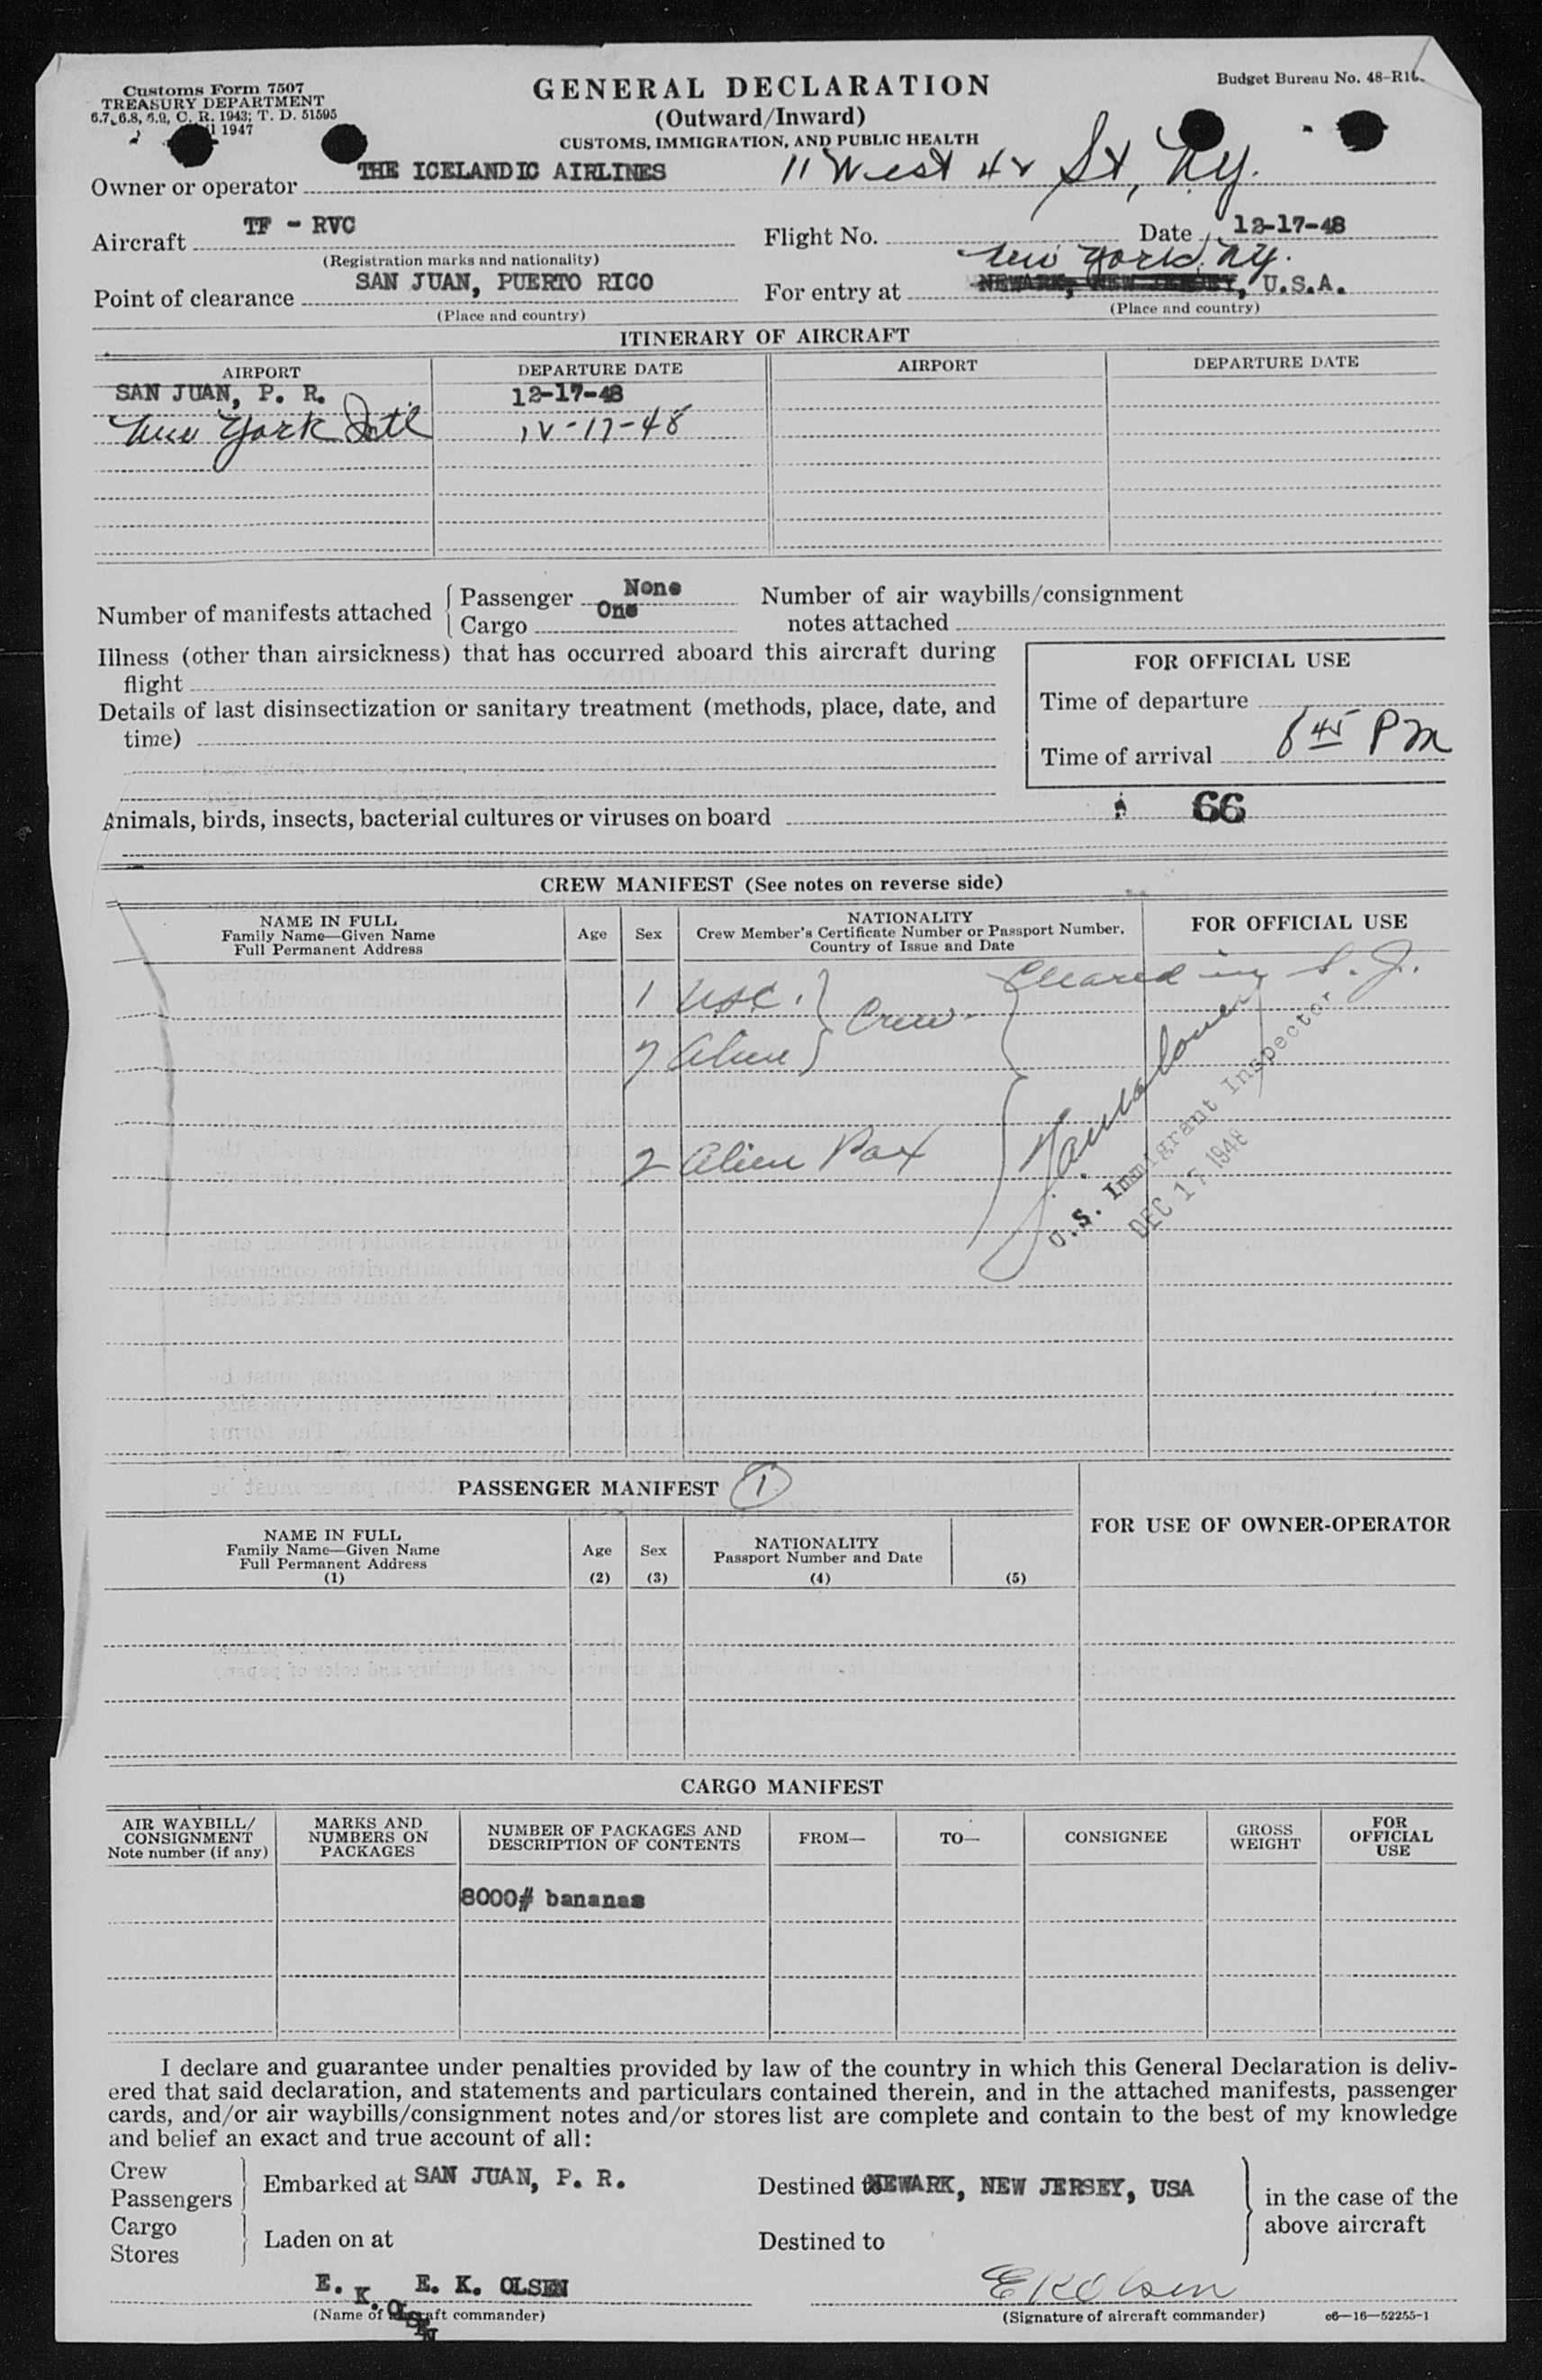 Customs Form 7507
TREASURY DEPARTMENT
6.7, 6.8, 6.9, C. R. 1943; T. D. 51595
1947
GENERAL DECLARATION
(Outward/Inward)
CUSTOMS, IMMIGRATION, AND PUBLIC HEALTH
Budget Bureau No. 48-R16
Owner or operator THE ICELANDIC AIRLINES 11 West 42 St, Ny.
Aircraft TF - RVC Flight No. Date 12-17-48
(Registration marks and nationality)
New York, Ny.
Point of clearance SAN JUAN, PUERTO RICO For entry at NEWARK, NEW JERSEY, U.S.A.
(Place and country) (Place and country)
ITINERARY OF AIRCRAFT
AIRPORT DEPARTURE DATE AIRPORT DEPARTURE DATE
SAN JUAN, P. R. 12-17-48
New York Intl 12-17-48
Number of manifests attached Passenger None Number of air waybills/consignment
Cargo One notes attached
Illness (other than airsickness) that has occurred aboard this aircraft during
flight
Details of last disinsectization or sanitary treatment (methods, place, date, and
time)
FOR OFFICIAL USE
Time of departure
Time of arrival 6 45 PM
Animals, birds, insects, bacterial cultures or viruses on board
66
CREW MANIFEST (See notes on reverse side)
NAME IN FULL
Family Name—Given Name
Full Permanent Address
Age
Sex
NATIONALITY
Crew Member's Certificate Number or Passport Number,
Country of Issue and Date
FOR OFFICIAL USE
1 USC. Crew. Cleared in S. J.
7 Alien
2 Alien Pax
U.S. Immigrant Inspector
DEC 17 1948
PASSENGER MANIFEST 1
FOR USE OF OWNER-OPERATOR
NAME IN FULL
Family Name—Given Name
Full Permanent Address
(1)
Age
(2)
Sex
(3)
NATIONALITY
Passport Number and Date
(4)
(5)
CARGO MANIFEST
AIR WAYBILL/
CONSIGNMENT
Note number (if any)
MARKS AND
NUMBERS ON
PACKAGES
NUMBER OF PACKAGES AND
DESCRIPTION OF CONTENTS
FROM—
TO—
CONSIGNEE
GROSS
WEIGHT
FOR
OFFICIAL
USE
8000# bananas
I declare and guarantee under penalties provided by law of the country in which this General Declaration is deliv-
ered that said declaration, and statements and particulars contained therein, and in the attached manifests, passenger
cards, and/or air waybills/consignment notes and/or stores list are complete and contain to the best of my knowledge
and belief an exact and true account of all:
Crew
Passengers
Embarked at SAN JUAN, P. R. Destined to NEWARK, NEW JERSEY, USA
in the case of the
above aircraft
Cargo
Stores
Laden on at Destined to
E. K. OLSEN E. K. OLSEN
(Name of aircraft commander)
E K Olsen
(Signature of aircraft commander)
c6—16—52255-1